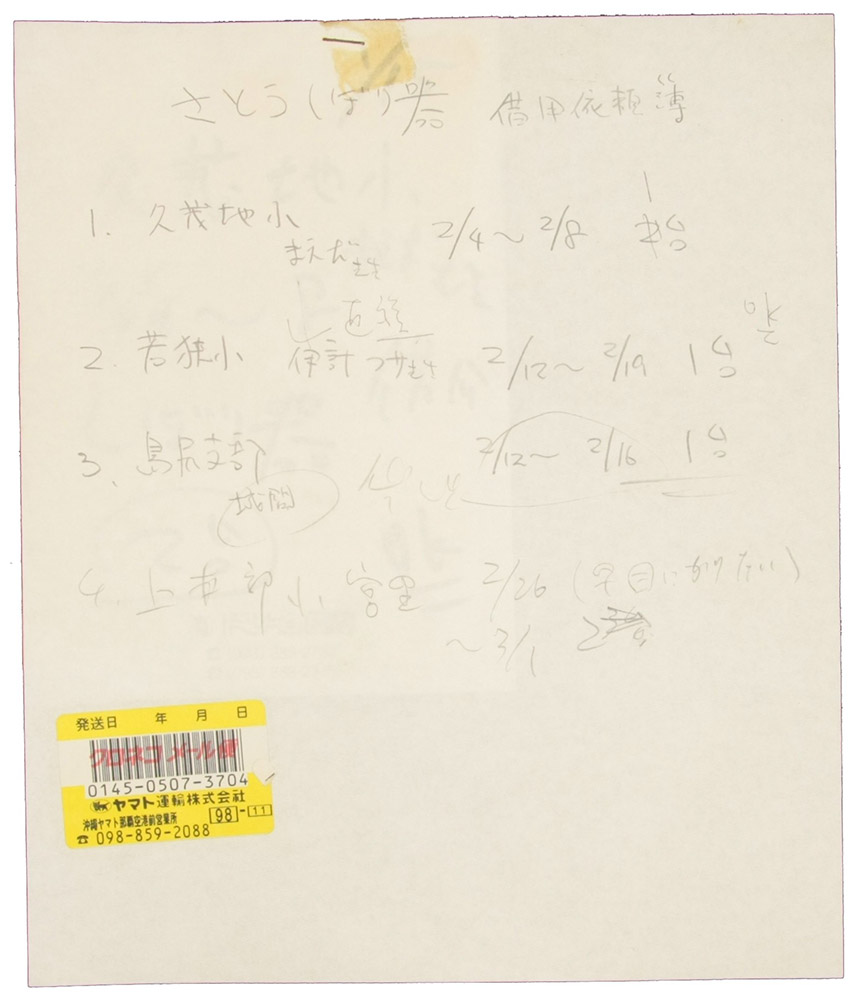 さとうしぼり器 借用依頼簿
1. 久茂地小 2/4〜2/8 1台
まえだ先生
直接
2. 若狭小 伊計つサ先生 2/12〜2/19 1台
3. 島尻支部 2/12〜2/16 1台
城間
4. 上本部小 宮里 2/26 (早目にかりたい)
〜3/1 2
発送日 年 月 日
クロネコメール便
0145-0507-3704
ヤマト運輸株式会社
沖縄ヤマト那覇空港前営業所 98-11
☎098-859-2088